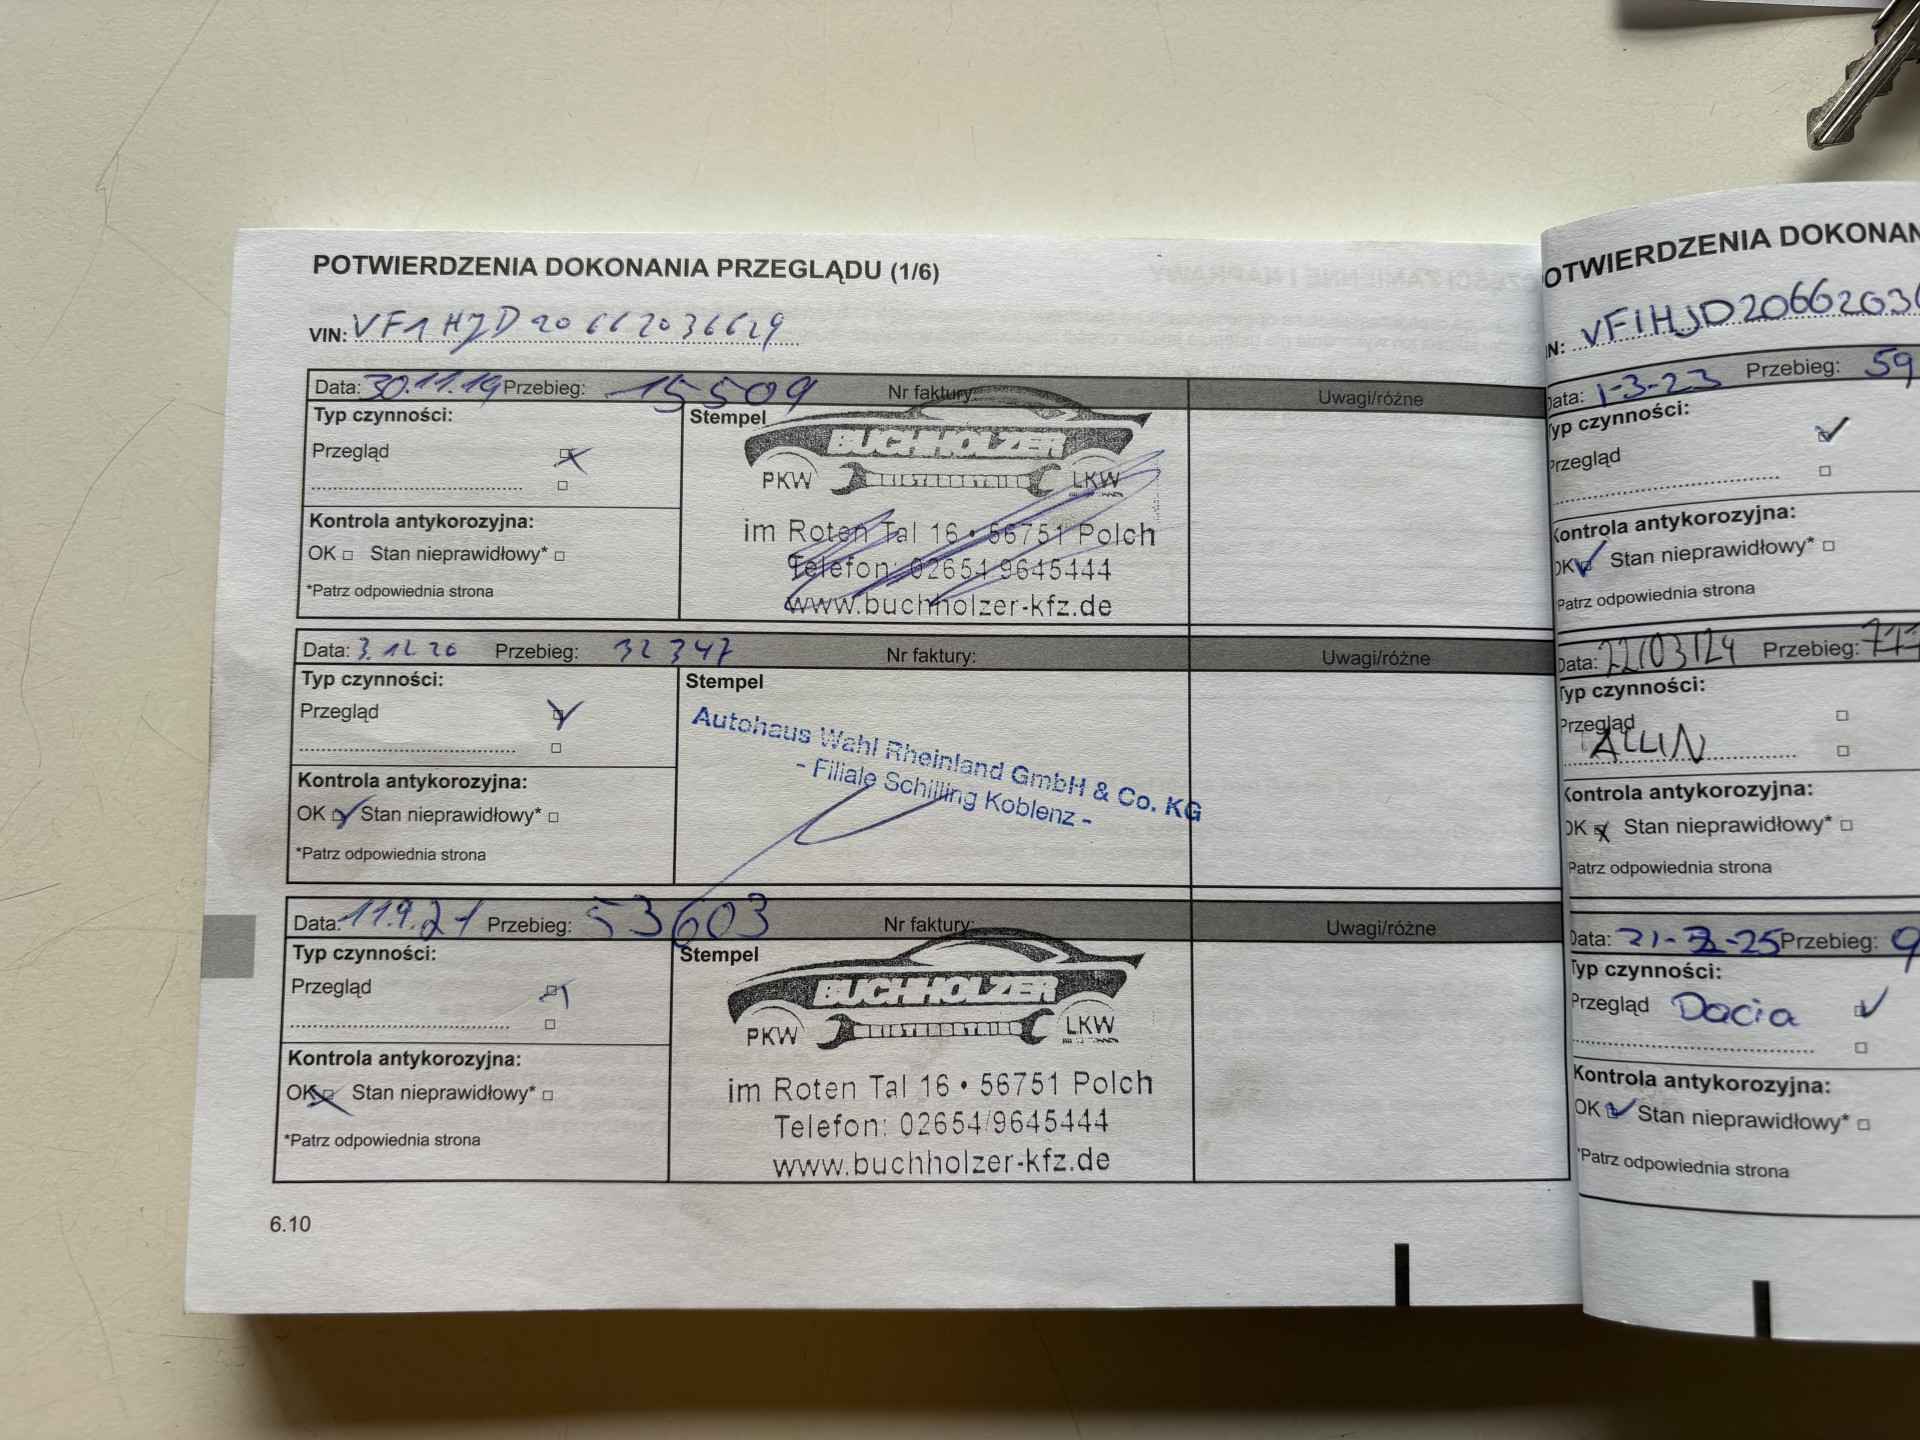 POTWIERDZENIA DOKONANIA PRZEGLĄDU (1/6)
VIN: VF1HJD20662036629
Data: 30.11.19 Przebieg: 15509 Nr faktury: Uwagi/różne
Typ czynności:
Stempel
Przegląd
BUCHHOLZER
PKW LKW
Kontrola antykorozyjna:
OK □ Stan nieprawidłowy* □
*Patrz odpowiednia strona
im Roten Tal 16 • 56751 Polch
Telefon: 02654/9645444
www.buchholzer-kfz.de
Data: 3.12.20 Przebieg: 32347 Nr faktury: Uwagi/różne
Typ czynności:
Stempel
Przegląd
Autohaus Wahl Rheinland GmbH & Co. KG
- Filiale Schilling Koblenz -
Kontrola antykorozyjna:
OK Stan nieprawidłowy* □
*Patrz odpowiednia strona
Data: 11.9.21 Przebieg: 53603 Nr faktury: Uwagi/różne
Typ czynności:
Stempel
Przegląd
BUCHHOLZER
PKW LKW
Kontrola antykorozyjna:
OK Stan nieprawidłowy* □
*Patrz odpowiednia strona
im Roten Tal 16 • 56751 Polch
Telefon: 02654/9645444
www.buchholzer-kfz.de
6.10
OTWIERDZENIA DOKONAN
IN: VF1HJD2066203
Data: 1-3-23 Przebieg: 59
Typ czynności:
Przegląd
Kontrola antykorozyjna:
OK Stan nieprawidłowy* □
Patrz odpowiednia strona
Data: 22/03/24 Przebieg: 77
Typ czynności:
Przegląd
ALLIN
Kontrola antykorozyjna:
OK Stan nieprawidłowy* □
Patrz odpowiednia strona
Data: Przebieg: 9
Typ czynności:
Przegląd Dacia
Kontrola antykorozyjna:
OK Stan nieprawidłowy* □
*Patrz odpowiednia strona